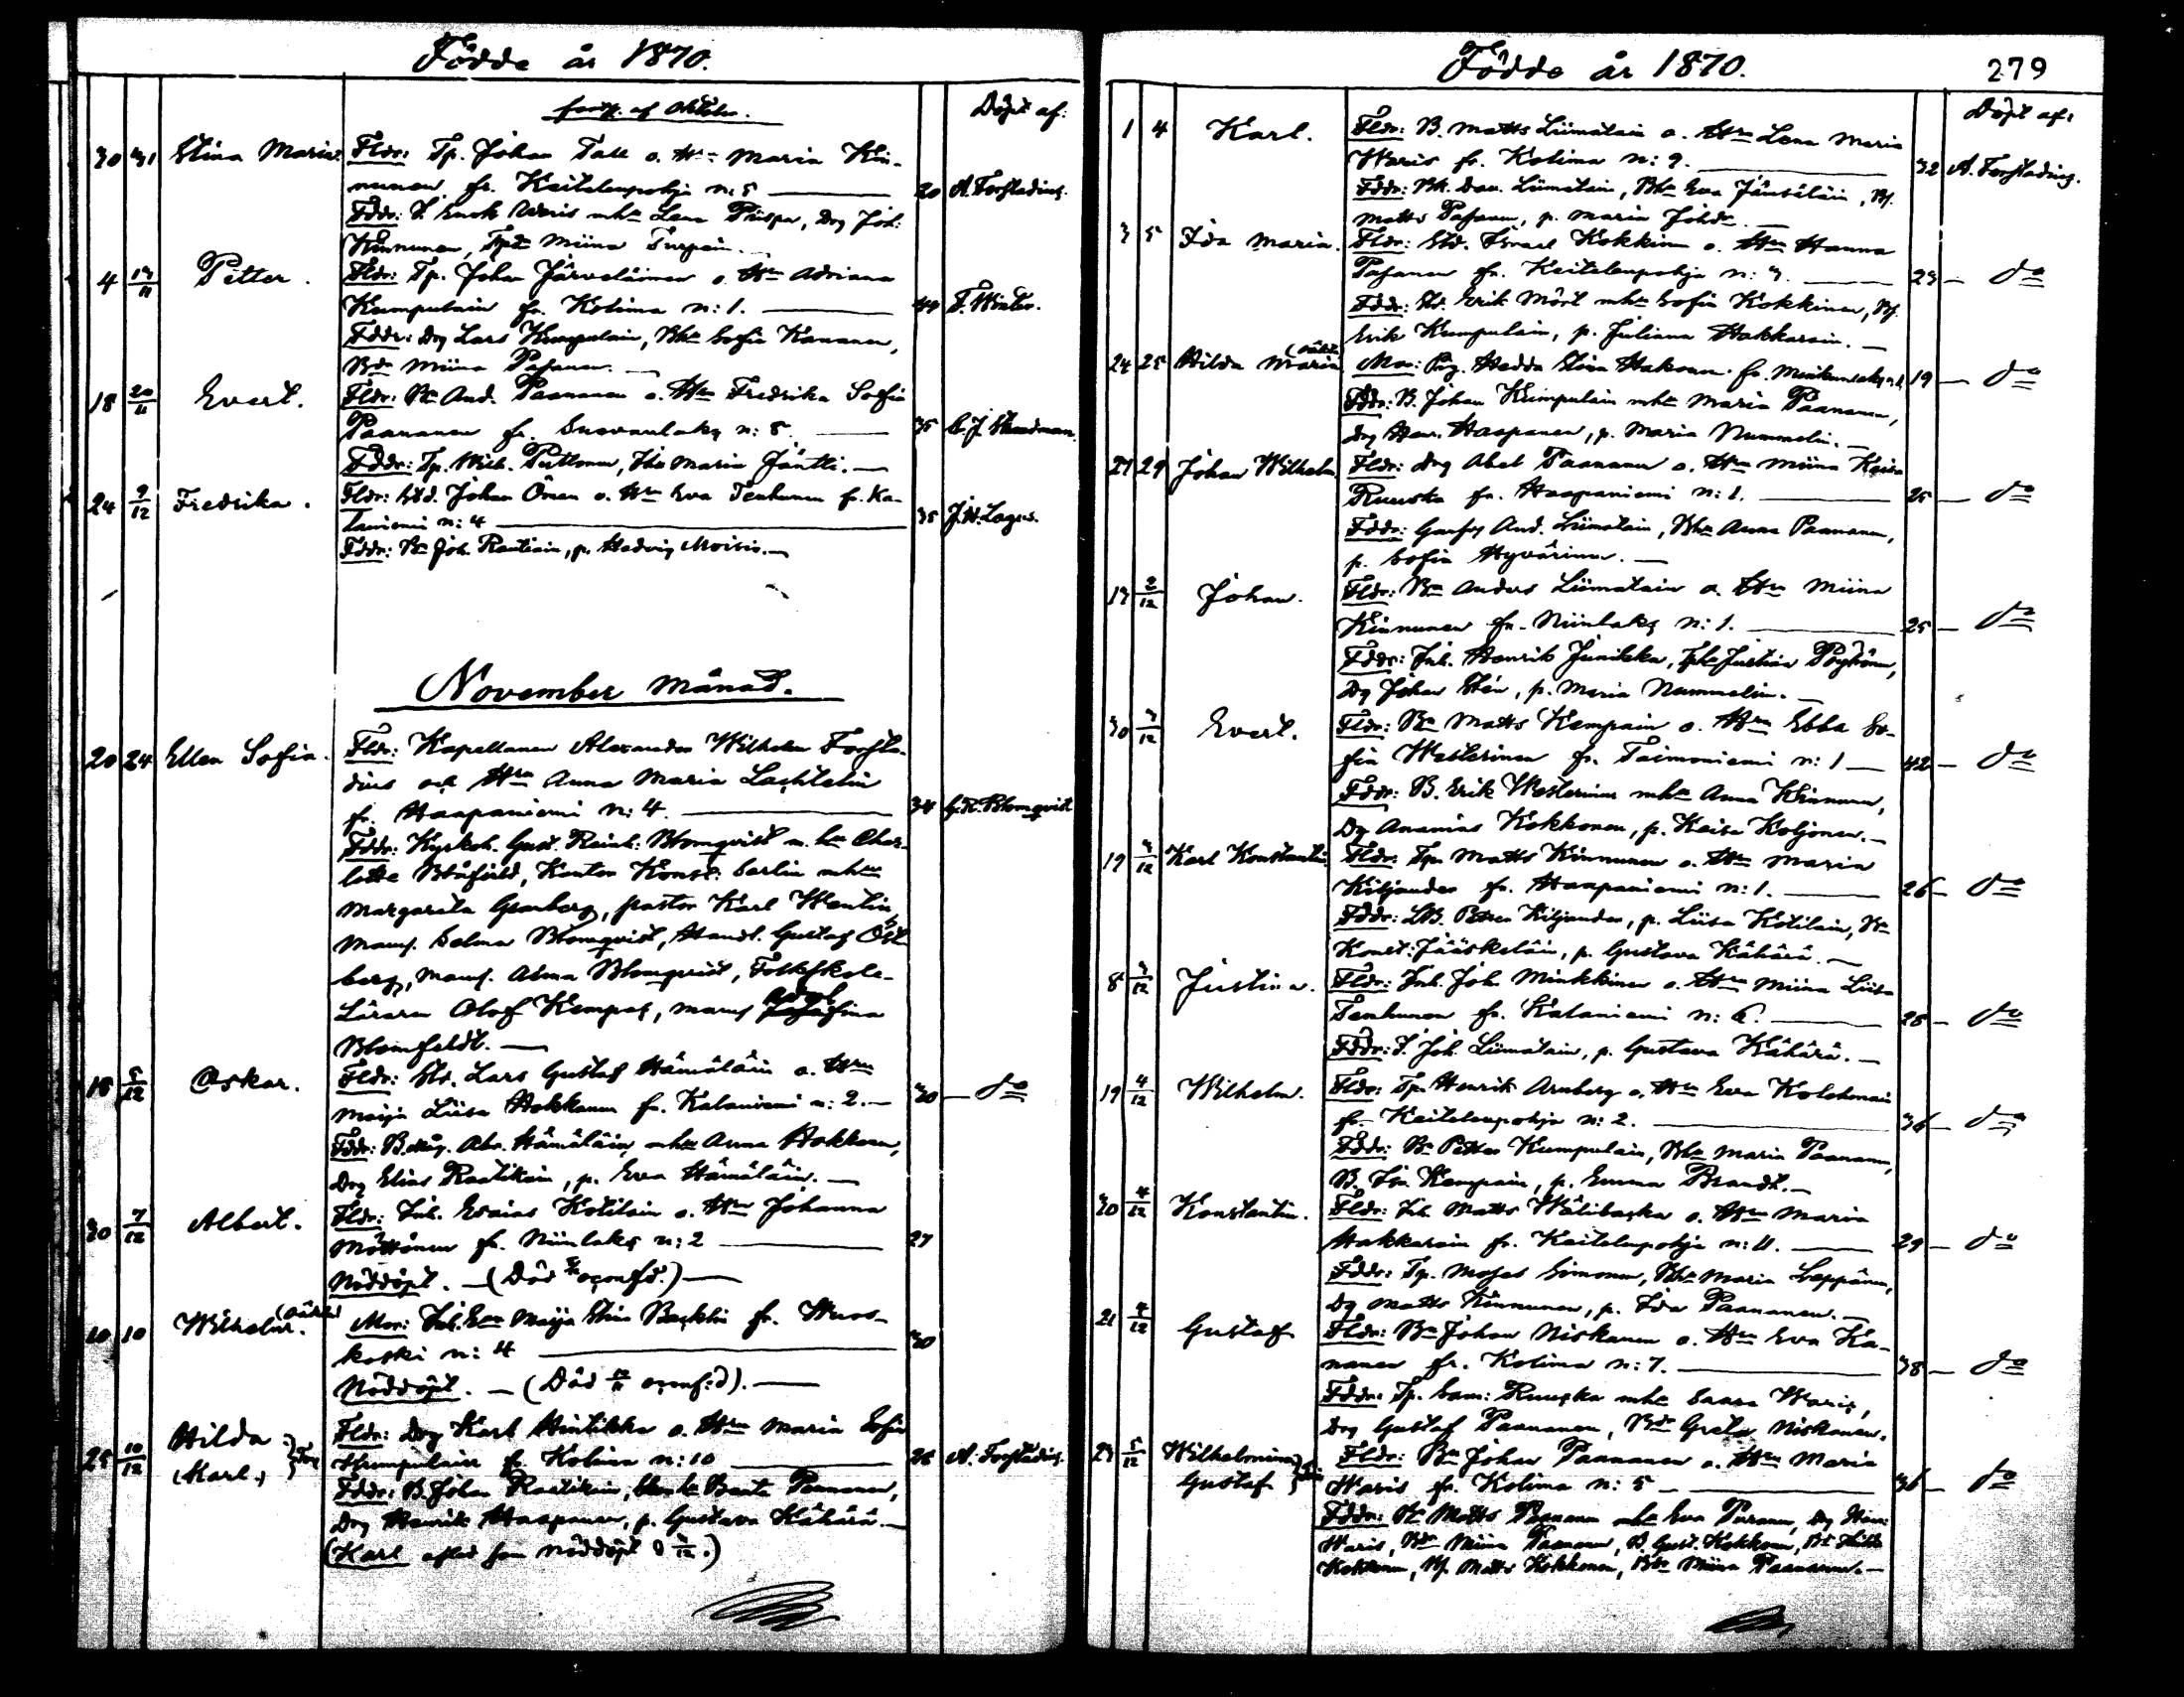 Födde år 1870.
fortß. af Oktober.
Döpt af:
30 31 Stina Maria. Fldr: Tp. Johan Tall o. Hn Maria Kin-
nunen fr. Keitelenpohja n: 5 — 20 A. Forstadius.
Fddr: S. Enok Waris mhn Lena Piispa, Drg Joh:
Kinnunen, Tpdr Miina Turpein. —
4 13/11 Petter. Fldr: Tp. Johan Järveläinen o. Hn Adriana
Kumpulain fr. Kolima n: 1. — 44 F. Winter.
Fddr: Drg Lars Kumpulain, Bhn Sofia Kananen,
Bdr Miina Pasanen. —
18 20/11 Evert. Fldr: Bn And. Paananen o. Hn Fredrika Sofia
Paananen fr. Suovanlaks n: 5. — 35
Fddr: Tp. Wilh. Puttonen, Maria Jäntti. —
24 9/12 Fredrika. Fldr: Sld. Johan Öman o. Hn Eva Tenhunen fr. Ka-
laniemi n: 4 — 35 J. H. Lagus.
Fddr: Bn Joh. Rautiain, p. Hedvig Moisio. —
November Månad.
20 24 Ellen Sofia. Fldr: Kapellanen Alexander Wilhelm Forsta-
dius och Hru Anna Maria Lachtelin
fr. Haapaniemi n: 4. — 34 G. R. Blomqvist
Fddr: Kyrkoh. Gust. Reinh: Blomqvist m. hu Char-
lotta Blåfield, Kantor Konst: Sarlin mhu
Margareta Granberg, pastor Karl Wentin,
Mams. Selma Blomqvist, Handl. Gustaf Öst-
berg, Mams. Alma Blomqvist, Folkskole-
Läraren Olof Kempas, Mams
Blomfeldt. —
18 5/12 Oskar. Fldr: Sld. Lars Gustaf Hämäläin o. Hru
Maija Liisa Hakkanen fr. Kalaniemi n: 2. — 30 — do
Fddr: B. Abr. Hämäläin mhu Anna Hakkanen,
Drg Elias Raatikain, p. Eva Hämäläin. —
30 7/12 Albert. Fldr: Inh. Esaias Kotilain o. Hru Johanna
Möttönen fr. Niinilaks n: 2 — 27
Nöddöpt. — (Död oconfd.) —
10 10 Wilhelm. (oäkta) Mor: Inh. Maija Stina Backlin fr. Wuos-
koski n: 4 — 30
Nöddöpt. — (Död oconf:d). —
25 10/12 Hilda (Karl.) Fldr: Drg Karl Hintikka o. Hru Maria Sofia
Kumpulain fr. Kolima n: 10 — 26 A. Forstadius.
Fddr: B. Johan Raatikain, Paananen,
Drg Henrik Haapanen, p. Gustava Kähärä. —
(Karl nöddöpt)
Födde år 1870.
279
Döpt af:
1 4 Karl. Fldr: B. Matts Liimatain o. Hru Lena Maria
Waris fr. Kolima n: 9. — 32 A. Forstadius.
Fddr: Bk. Dav. Liimatain, Bhn Eva Jämsäläin, Bs.
Matts Pasanen, p. Maria —
3 5 Ida Maria. Fldr: Sld. Israel Kokkinen o. Hru Hanna
Pasanen fr. Keitelenpohja n: 3. — 23 — do
Fddr: Sld. Erik Mört mhn Sofia Kokkinen, Bs.
Erik Kumpulain, p. Juliana Hakkarain. —
24 25 Hilda Maria (oäkta) Mor: Pig. Hedda Stina Hakonen fr. 19 — do
Fddr: B. Johan Kumpulain mhn Maria Paananen,
Drg Henr. Haapanen, p. Maria Nummelin. —
27 29 Johan Wilhelm. Fldr: Drg Abel Paananen o. Hru Miina Kaisa
Ruuska fr. Haapaniemi n: 1. — 25 — do
Fddr: And. Liimatain, Bhn Anna Paananen,
p. Sofia Hyvärinen. —
13 2/12 Johan. Fldr: Bn Anders Liimatain o. Hru Miina
Kinnunen fr. Niinilaks n: 1. — 25 — do
Fddr: Inh. Henrik Junikka, Justina Pöyhönen,
Drg Johan Stén, p. Maria Nummelin. —
30 3/12 Evert. Fldr: Bn Matts Kempain o. Hru Ebba So-
fia Westerinen fr. Taimoniemi n: 1 — 42 — do
Fddr: B. Erik Westerinen mhn Anna Kinnunen,
Drg Ananias Kokkonen, p. Kaisa Koljonen. —
19 3/12 Karl Konstantin. Fldr: Tp. Matts Kinnunen o. Hru Maria
Kiljander fr. Haapaniemi n: 1. — 26 — do
Fddr: LB. Petter Kiljander, p. Liisa Kotilain, Bn
Konst: Jääskeläin, p. Gustava Kähärä. —
8 3/12 Justina. Fldr: Inh. Joh. Minkkinen o. Hru Miina Liisa
Tenhunen fr. Kalaniemi n: 6. — 25 — do
Fddr: S. Joh. Liimatain, p. Gustava Kähärä. —
19 4/12 Wilhelm. Fldr: Tp. Henrik Arnberg o. Hru Eva Kolehmain
fr. Keitelenpohja n: 2. — 36 — do
Fddr: Bn Petter Kumpulain, Bhn Maria Paananen,
B. Isr. Kempain, p. Emma Brandt. —
30 4/12 Konstantin. Fldr: Inh. Matts Wälilaska o. Hru Maria
Hakkarain fr. Keitelenpohja n: 11. — 29 — do
Fddr: Tp. Moses Simonen, Bhn Maria Leppänen,
Drg Matts Kinnunen, p. Ida Paananen. —
21 4/12 Gustaf Fldr: Bn Johan Niskanen o. Hru Eva Ka-
nanen fr. Kolima n: 7. — 38 — do
Fddr: Tp. Sam: Ruuska mhn Saara Waris,
Drg Gustaf Paananen, Bdr Greta Niskanen.
23 5/12 Wilhelmina Gustaf Fldr: Bn Johan Paananen o. Hru Maria
Waris fr. Kolima n: 5 — 36 — do
Fddr: Matts Paananen mhn Eva Puranen, Drg
Waris, Bdr Miina Paananen, B. Gust. Kokkonen, Hilda
Kokkonen, Bs. Matts Kokkonen, Bdr Miina Paananen. —